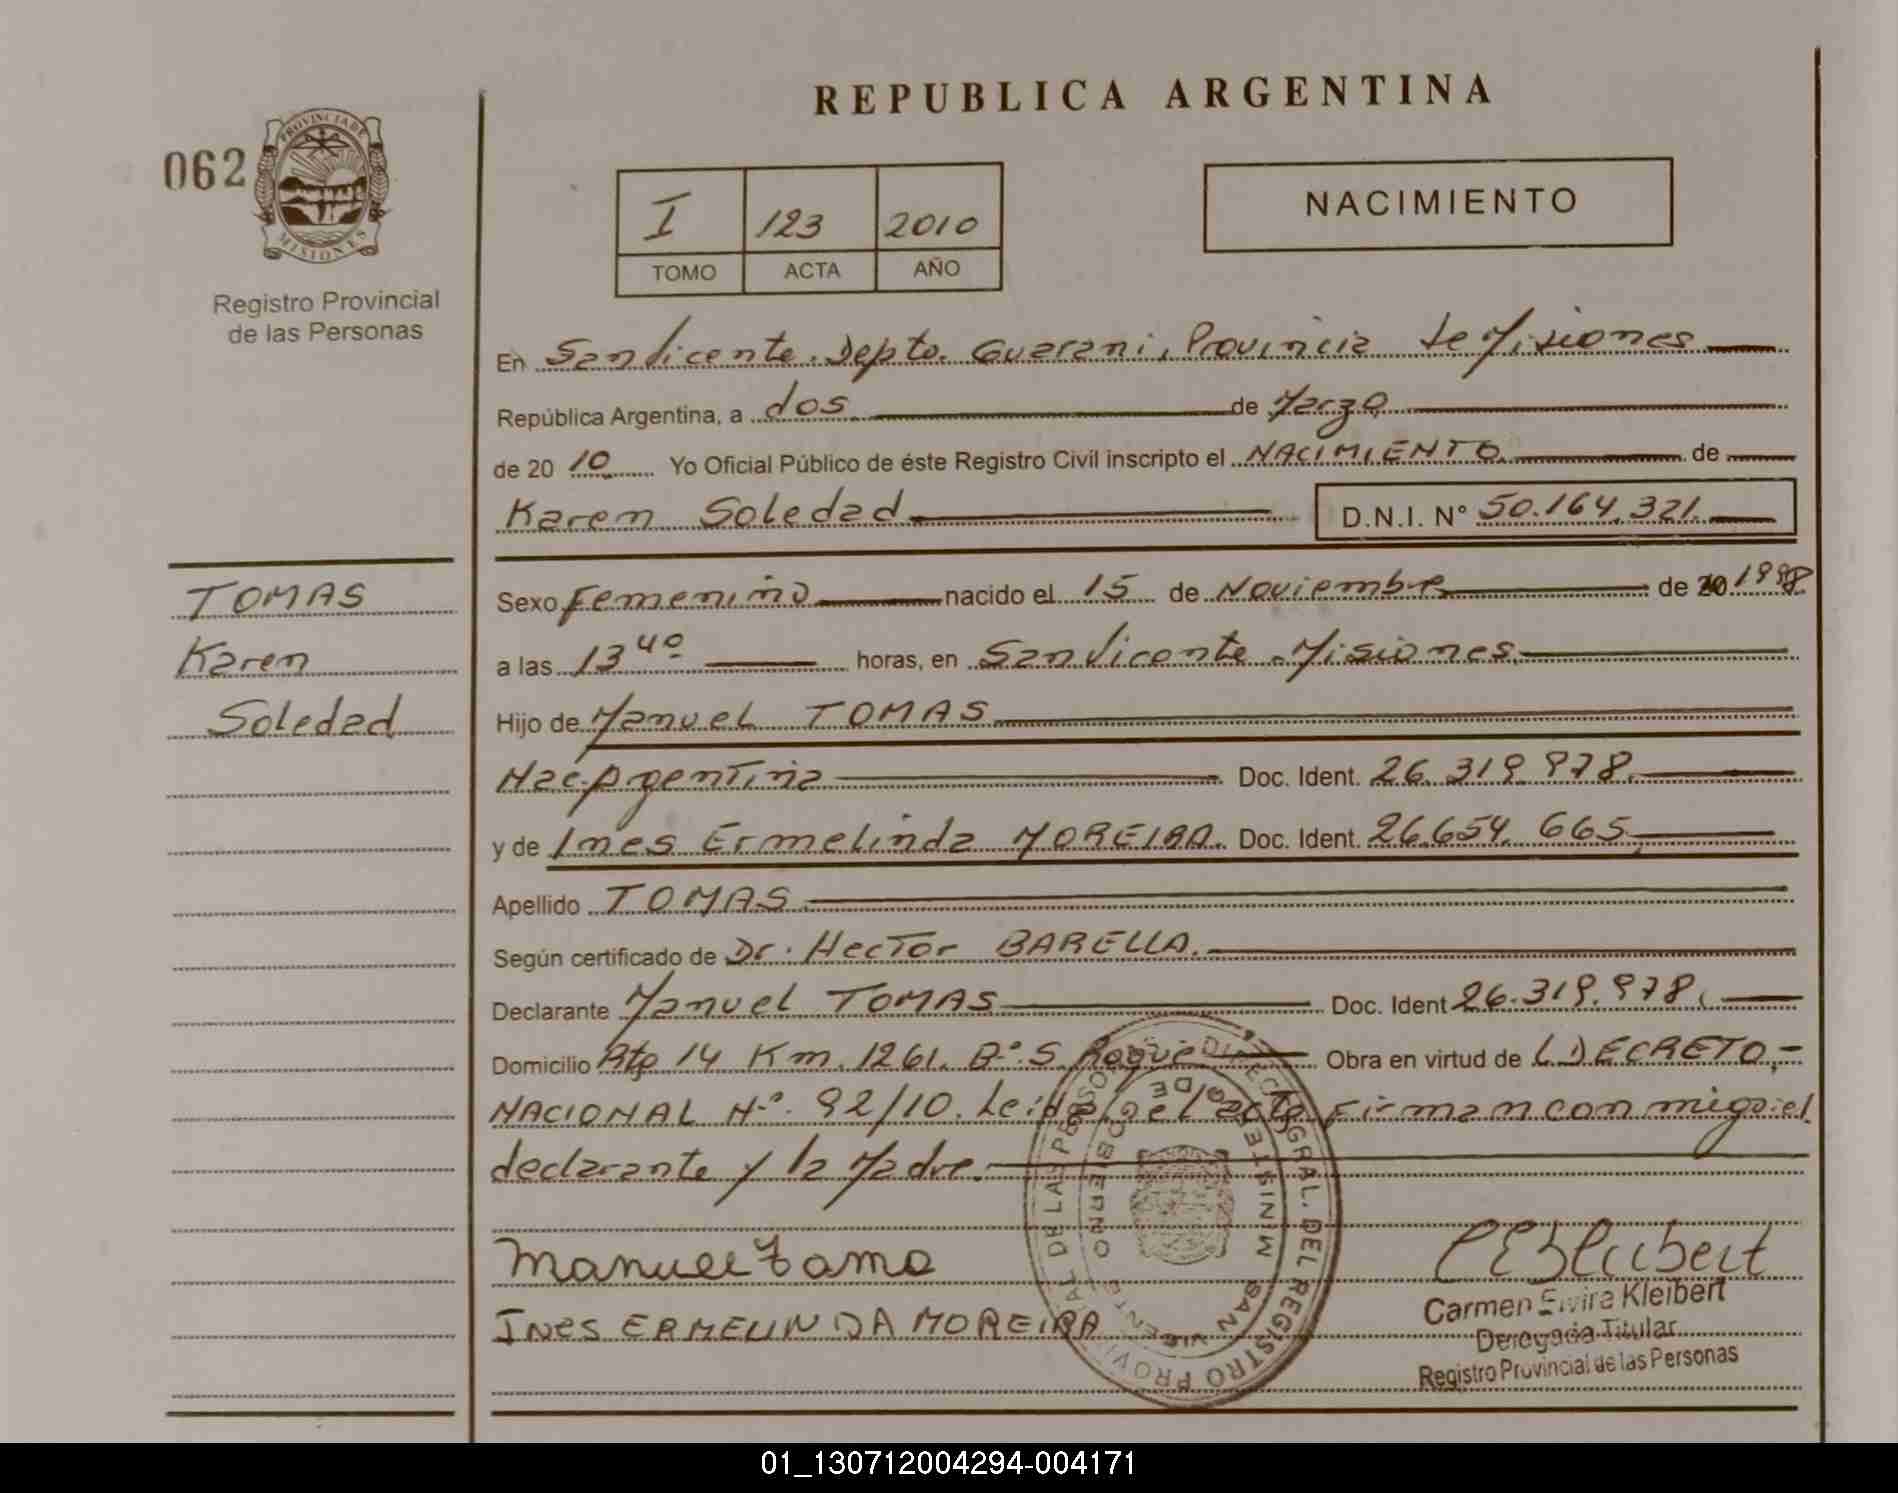 REPUBLICA ARGENTINA
062
PROVINCIA DE
MISIONES
Registro Provincial
de las Personas
I 123 2010
TOMO ACTA AÑO
NACIMIENTO
En San Vicente. Depto. Guarani, Provincia de Misiones
República Argentina, a dos de Marzo
de 20 10 Yo Oficial Público de éste Registro Civil inscripto el NACIMIENTO de
Karen Soledad D.N.I. N° 50.164.321.
TOMAS
Karen
Soledad
Sexo Femenino nacido el 15 de Noviembre de 20 1998
a las 13 40 horas, en San Vicente Misiones
Hijo de Manuel TOMAS
Nac. Argentina Doc. Ident. 26.319.978.
y de Ines Ermelinda MOREIRA. Doc. Ident. 26.654.665
Apellido TOMAS
Según certificado de Dr. Hector BARELLA.
Declarante Manuel TOMAS Doc. Ident 26.319.978.
Domicilio Rta 14 Km. 1261. B.° S. Roque Obra en virtud de DECRETO
NACIONAL N.° 92/10. Leida el acta firman conmigo: el
declarante y la Madre.
Manuel Toma
INES ERMELINDA MOREIRA
Carmen Elvira Kleibert
Delegada Titular
Registro Provincial de las Personas
DIRECC. GRAL. DEL REGISTRO PROVINCIAL DE LAS PERSONAS
MINISTERIO DE GOBIERNO
SAN VICENTE
01_130712004294-004171